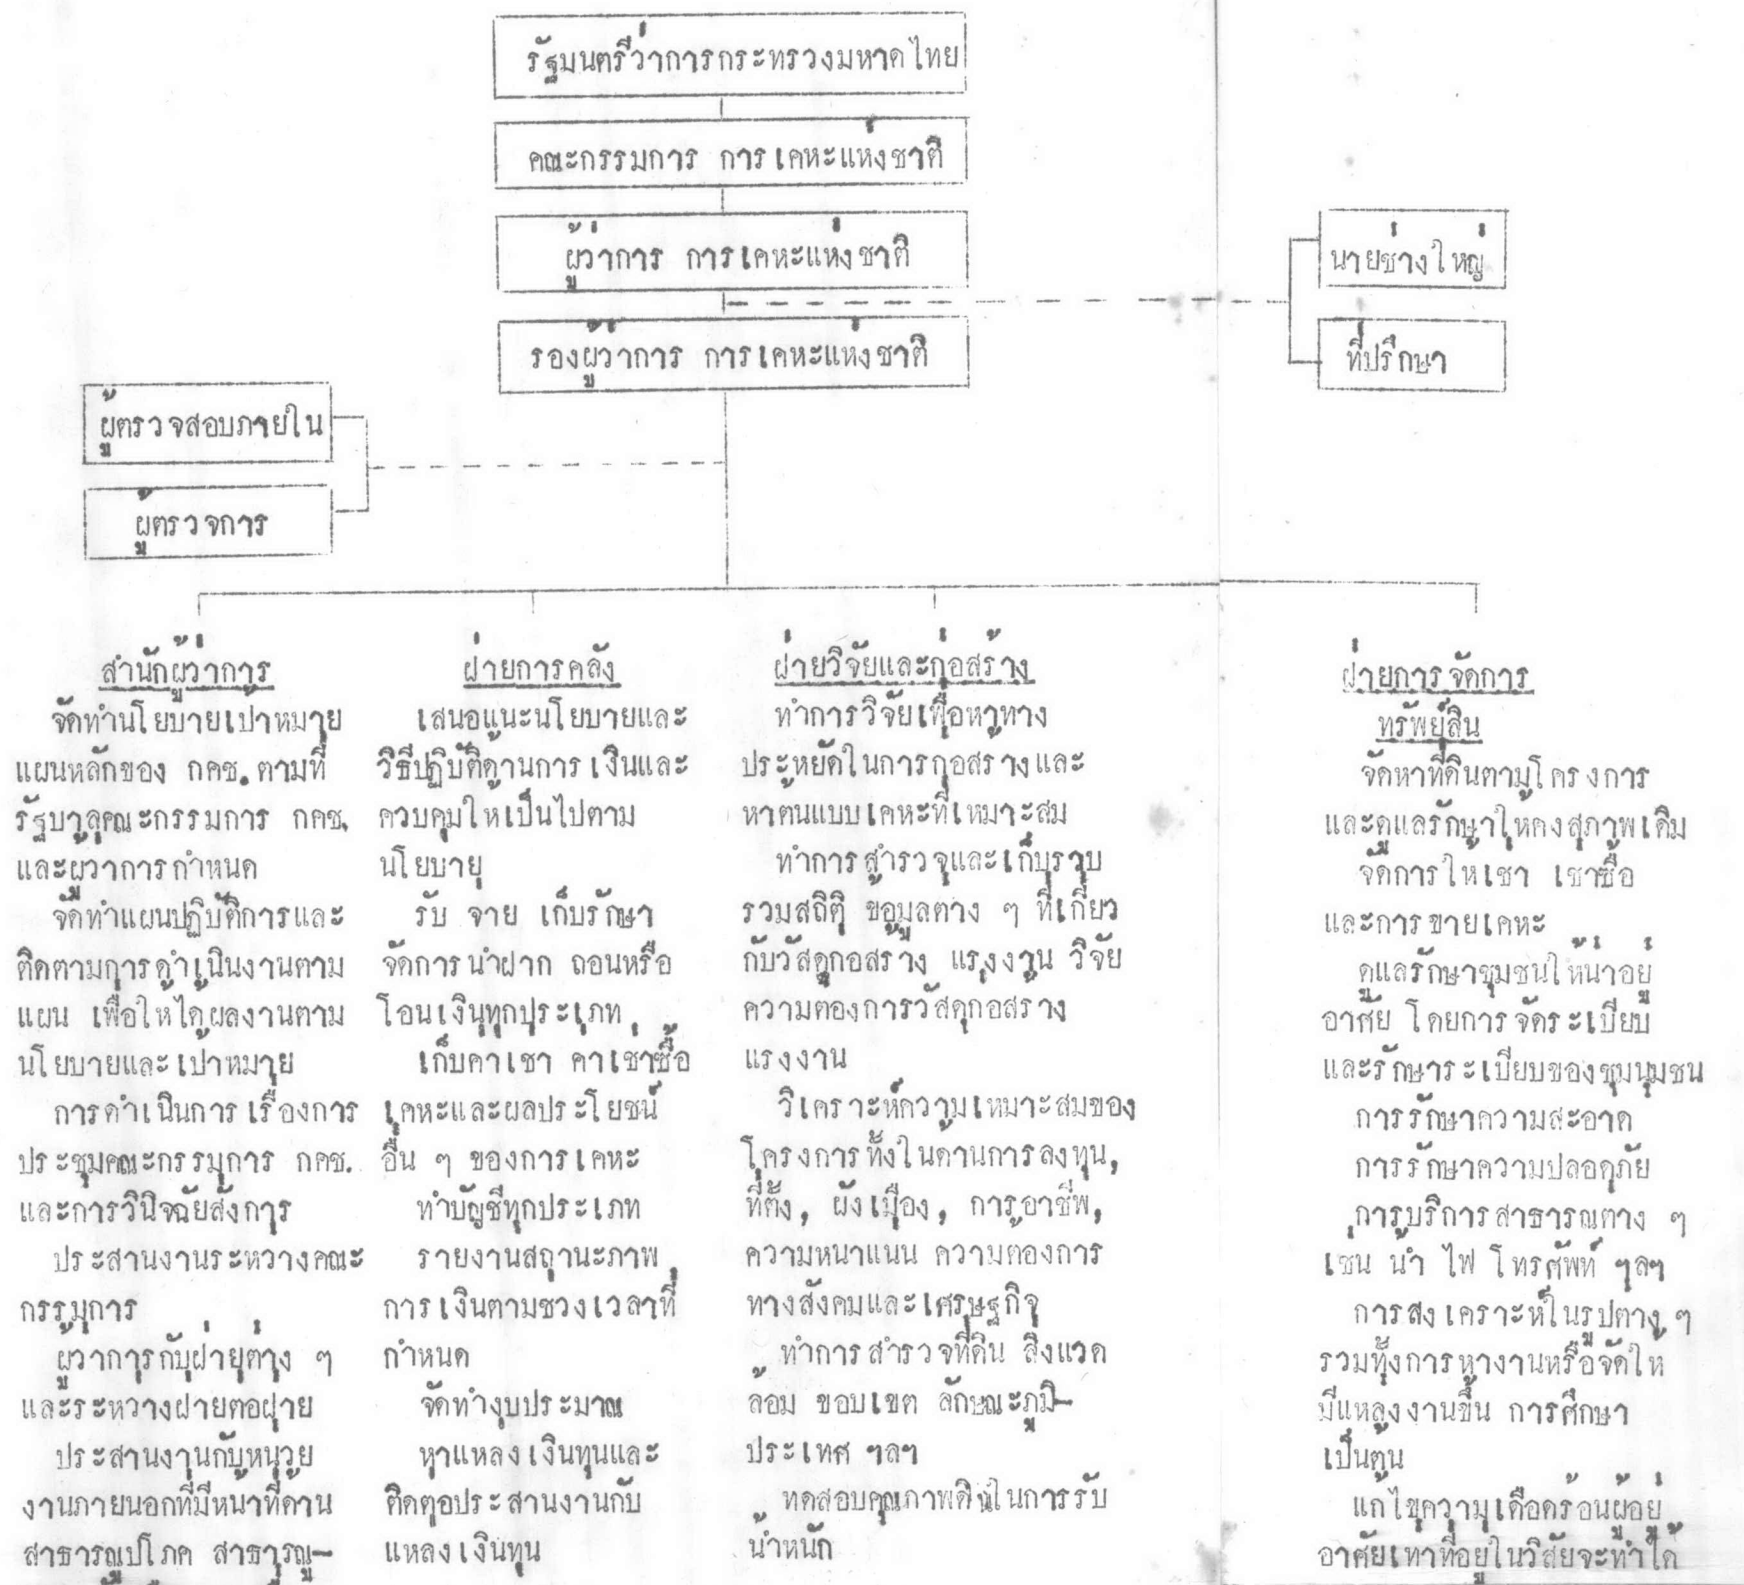 รัฐมนตรีว่าการกระทรวงมหาดไทย
คณะกรรมการ การเคหะแห่งชาติ
ผู้ว่าการ การเคหะแห่งชาติ
นายช่างใหญ่
รองผู้ว่าการ การเคหะแห่งชาติ
ที่ปรึกษา
ผู้ตรวจสอบภายใน
ผู้ตรวจการ
สำนักผู้ว่าการ
จัดทำนโยบายเป้าหมาย
แผนหลักของ กคช. ตามที่
รัฐบาลคณะกรรมการ กคช.
และผู้ว่าการกำหนด
จัดทำแผนปฏิบัติการและ
ติดตามการดำเนินงานตาม
แผน เพื่อให้ได้ผลงานตาม
นโยบายและเป้าหมาย
การดำเนินการเรื่องการ
ประชุมคณะกรรมการ กคช.
และการวินิจฉัยสั่งการ
ประสานงานระหว่างคณะ
กรรมการ
ผู้ว่าการกับฝ่ายต่าง ๆ
และระหว่างฝ่ายต่อฝ่าย
ประสานงานกับหน่วย
งานภายนอกที่มีหน้าที่ด้าน
สาธารณูปโภค สาธารณู-
ฝ่ายการคลัง
เสนอแนะนโยบายและ
วิธีปฏิบัติด้านการเงินและ
ควบคุมให้เป็นไปตาม
นโยบาย
รับ จ่าย เก็บรักษา
จัดการนำฝาก ถอนหรือ
โอนเงินทุกประเภท
เก็บค่าเช่า ค่าเช่าซื้อ
เคหะและผลประโยชน์
อื่น ๆ ของการเคหะ
ทำบัญชีทุกประเภท
รายงานสถานะภาพ
การเงินตามช่วงเวลาที่
กำหนด
จัดทำงบประมาณ
หาแหล่งเงินทุนและ
ติดต่อประสานงานกับ
แหล่งเงินทุน
ฝ่ายวิจัยและก่อสร้าง
ทำการวิจัยเพื่อหาทาง
ประหยัดในการก่อสร้างและ
หาต้นแบบเคหะที่เหมาะสม
ทำการสำรวจและเก็บรวบ
รวมสถิติ ข้อมูลต่าง ๆ ที่เกี่ยว
กับวัสดุก่อสร้าง แรงงาน วิจัย
ความต้องการวัสดุก่อสร้าง
แรงงาน
วิเคราะห์ความเหมาะสมของ
โครงการทั้งในด้านการลงทุน,
ที่ตั้ง, ผังเมือง, การอาชีพ,
ความหนาแน่น ความต้องการ
ทางสังคมและเศรษฐกิจ
ทำการสำรวจที่ดิน สิ่งแวด
ล้อม ขอบเขต ลักษณะภูมิ-
ประเทศ ฯลฯ
ทดสอบคุณภาพดินในการรับ
น้ำหนัก
ฝ่ายการจัดการ
ทรัพย์สิน
จัดหาที่ดินตามโครงการ
และดูแลรักษาให้คงสภาพเดิม
จัดการให้เช่า เช่าซื้อ
และการขายเคหะ
ดูแลรักษาชุมชนให้น่าอยู่
อาศัย โดยการจัดระเบียบ
และรักษาระเบียบของชุมนุมชน
การรักษาความสะอาด
การรักษาความปลอดภัย
การบริการสาธารณต่าง ๆ
เช่น น้ำ ไฟ โทรศัพท์ ฯลฯ
การสงเคราะห์ในรูปต่าง ๆ
รวมทั้งการหางานหรือจัดให้
มีแหล่งงานขึ้น การศึกษา
เป็นต้น
แก้ไขความเดือดร้อนผู้อยู่
อาศัยเท่าที่อยู่ในวิสัยจะทำได้